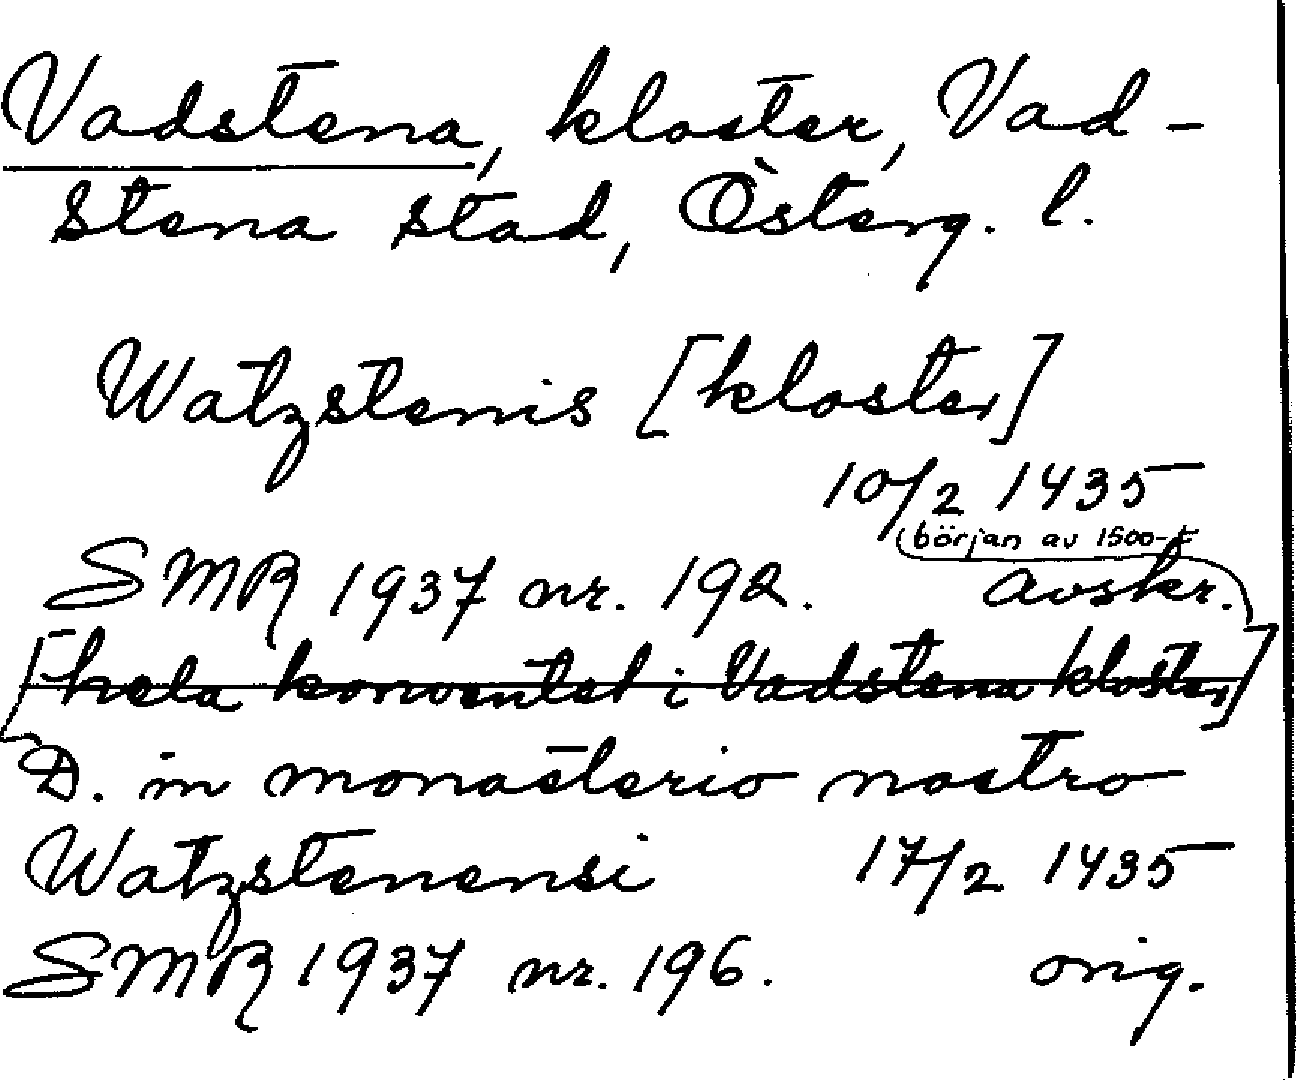 Vadstena, kloster, Vad-
stena stad, Österg. l.
Watzstenis [kloster]
10/2 1435
början av 1500-t
SMR 1937 nr. 192. avskr.
[hela konventet i Vadstena kloster]
D. in monasterio nostro
Watzstenensi 17/2 1435
SMR 1937 nr. 196. orig.